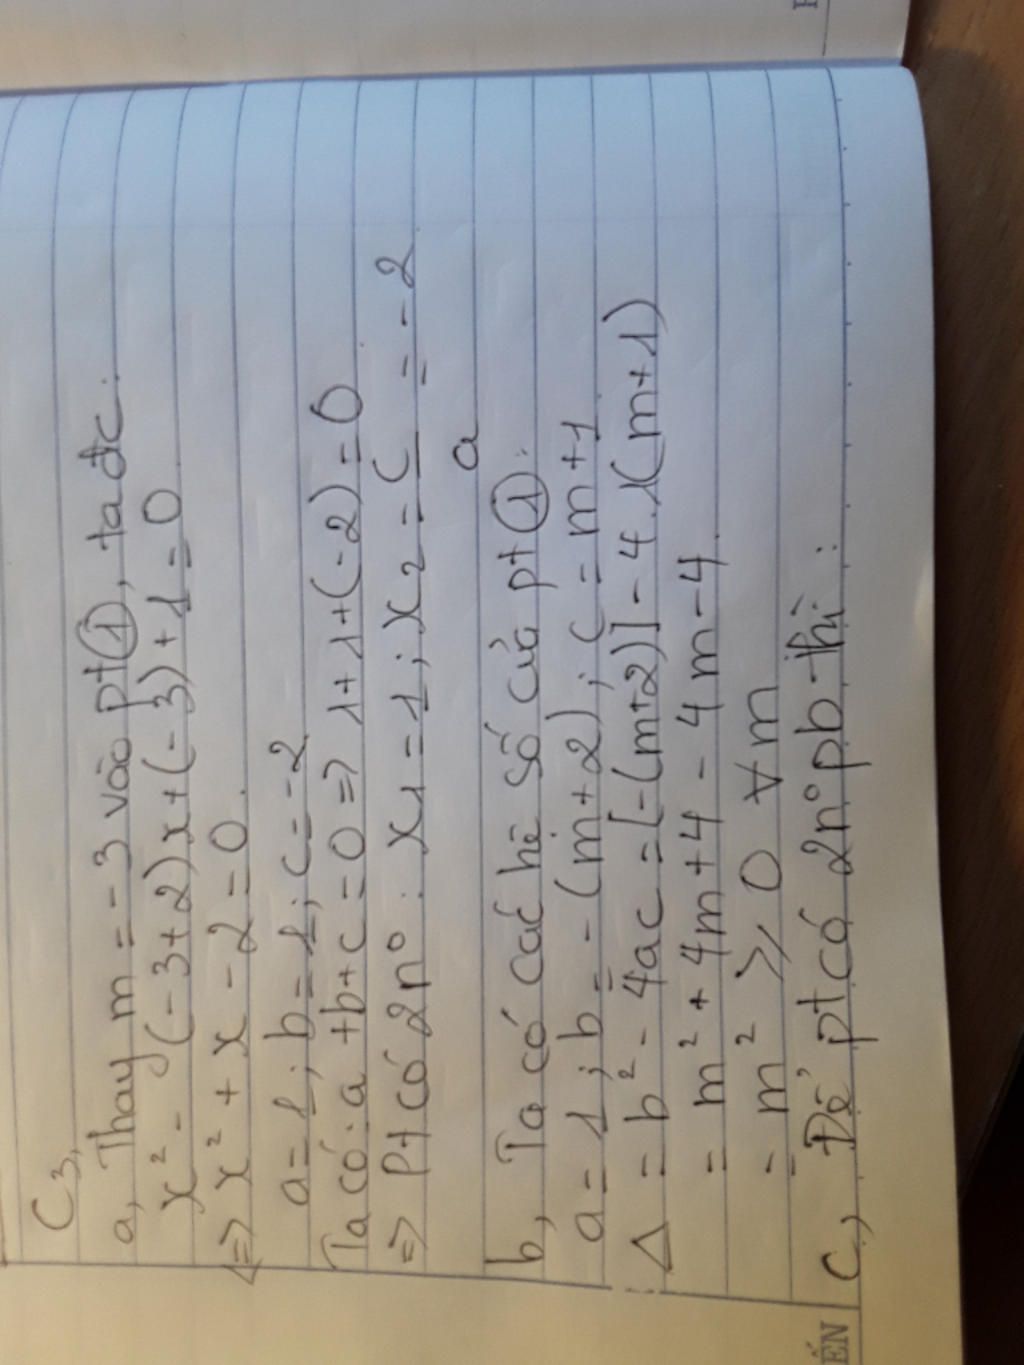 C3,
a, Thay m = -3 vào pt ①, ta đc:
x² - (-3+2)x + (-3) + 1 = 0
<=> x² + x - 2 = 0.
a = 1; b = 1; c = -2
Ta có: a + b + c = 0 => 1 + 1 + (-2) = 0
=> Pt có 2 n°: x₁ = 1; x₂ = c/a = -2
b, Ta có các hệ số của pt ①:
a = 1; b = -(m+2); c = m+1
Δ = b² - 4ac = [-(m+2)] - 4.1(m+1)
= m² + 4m + 4 - 4m - 4
= m² ≥ 0 ∀m
c, Để pt có 2 n° pb thì:
ẾN